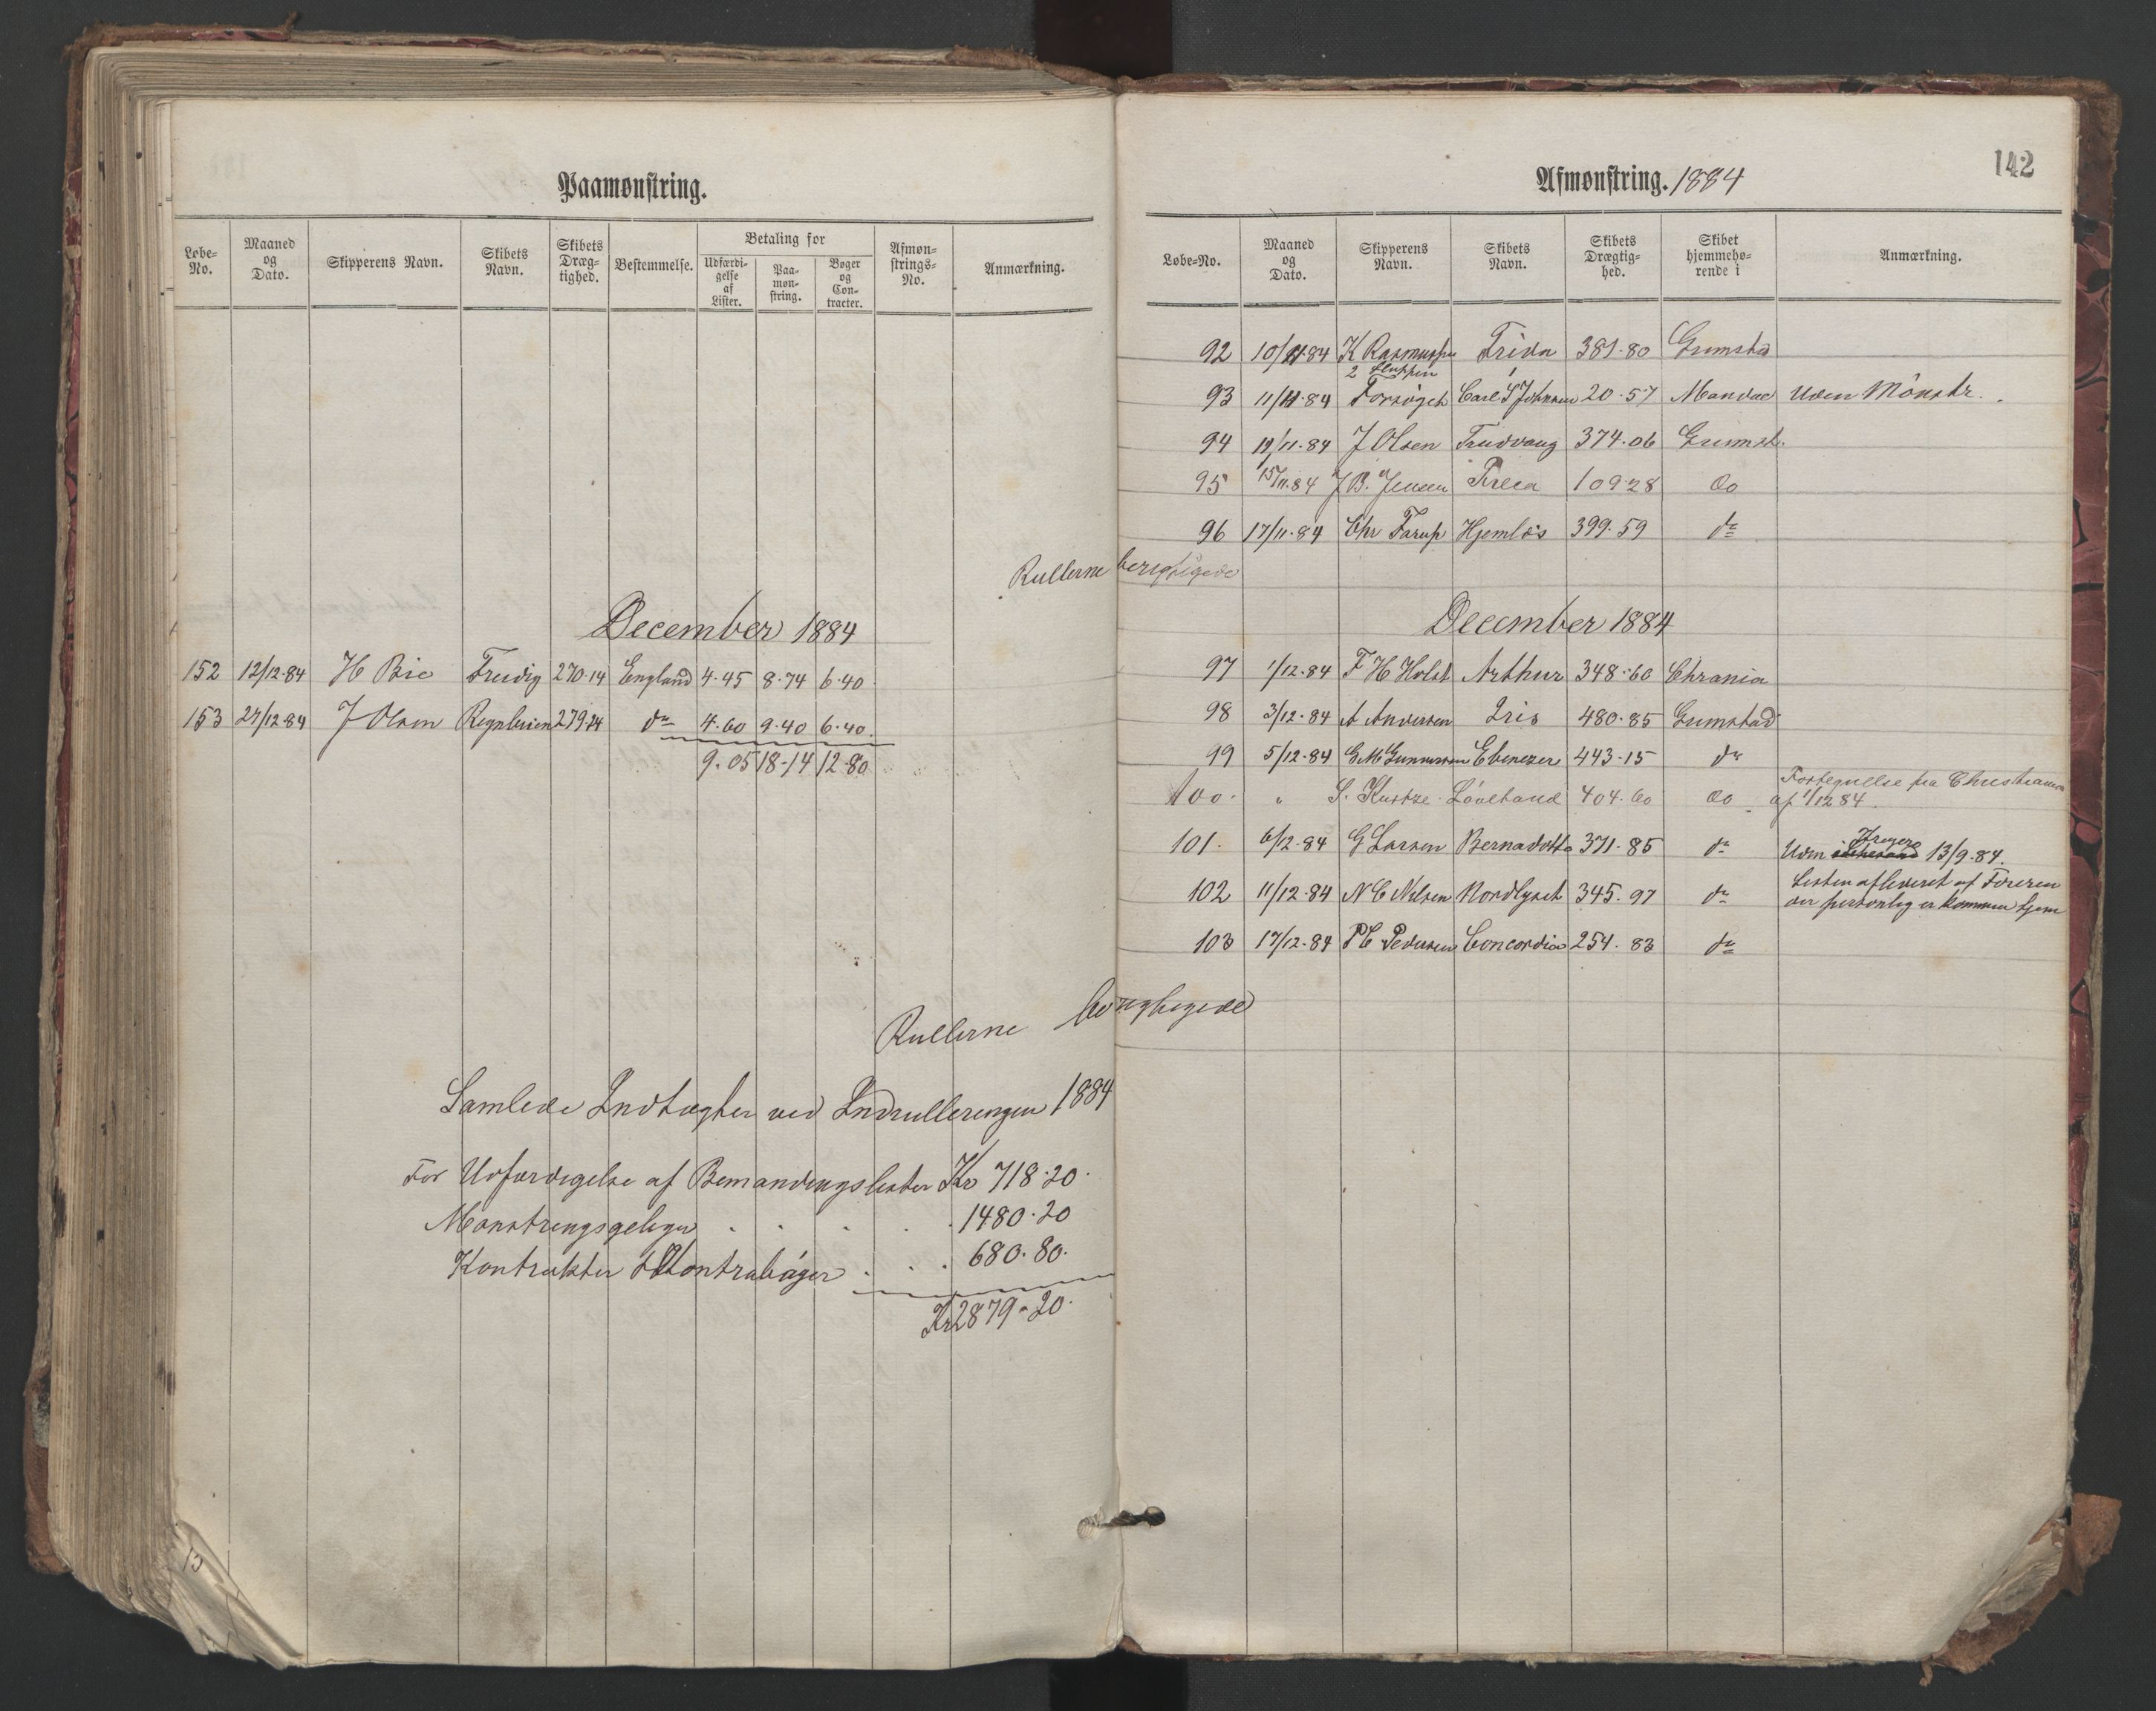 Paamønstring.
Løbe-No. Maaned og Dato. Skipperens Navn. Skibets Navn. Skibets Dræg-tighed. Bestemmelse. Betaling for Udfærdi-gelse af Lister. Paa-møn-string. Bøger og Con-tracter. Afmøn-strings-No. Anmærkning.
Rullerne berigtigede
December 1884
152 12/12.84 H Bie Freidig 270.14 England 4.45 8.74 6.40
153 27/12.84 J Olsen 279.24 do 4.60 9.40 6.40
9.05 18.14 12.80
Rullerne berigtigede
Samlede Indtægter ved Indrulleringen 1884
For Udfærdigelse af Bemandingslister Kr 718.20.
Mønstringsgebyr . . . . . 1480.20
Kontrakter & Kontrabøger . . . 680.80.
Kr 2879.20.
142
Afmønstring. 1884
Løbe-No. Maaned og Dato. Skipperens Navn. Skibets Navn. Skibets Drægtig-hed. Skibet hjemmehø-rende i Anmærkning.
92 10/11.84 K Rasmussen Frida 381.80 Grimstad
93 11/11.84 Forsøget Carl S Johnsen 20.57 Mandal Uden Mönstr.
94 12/11.84 J Olsen Trudvang 374.06 Grimst.
95 15/11.84 J B. Jensen 109.28 do
96 17/11.84 Chr Tarup Hjemløs 399.59 do
December 1884
97 1/12.84 F H Holst Arthur 348.60 Chrania
98 3/12.84 A Andersen Iris 480.85 Grimstad
99 5/12.84 G M Gunnersen Ebenezer 443.15 do
100. " S. Løveland 404.60 do Fortegnelse fra Christiania
af 1/12 84.
101. 6/12.84 G Larsen Bernadotte 371.85 do Uden 13/9.84.
102 11/12.84 N C Nilsen Nordlyset 345.97 do Listen afleveret af Føreren
der personlig er kommen hjem
103 17/12.84 P C Pedersen Concordia 254.83 do